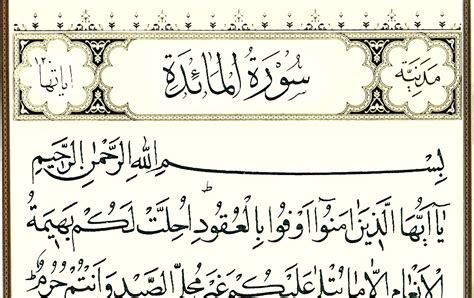 مدنية سورة المائدة اياتها ١٢٠
بِسْمِ اللهِ الرَّحْمٰنِ الرَّحِيمِ
يَآ اَيُّهَا الَّذِينَ اٰمَنُوٓا اَوْفُوا بِالْعُقُودِ ط اُحِلَّتْ لَكُمْ بَهِيمَةُ
الْاَنْعَامِ اِلَّا مَا يُتْلٰى عَلَيْكُمْ غَيْرَ مُحِلِّي الصَّيْدِ وَاَنْتُمْ حُرُمٌ ط